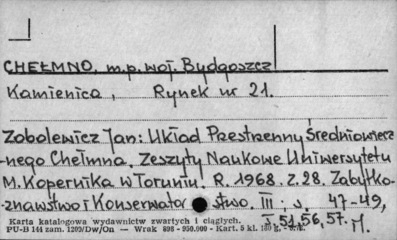 CHEŁMNO, m.p. woj. Bydgoszcz
Kamienica, Rynek nr 21.
Zobolewicz Jan: Układ Przestrzenny Średniowiecz
-nego Chełmna. Zeszyty Naukowe Uniwersytetu
M. Kopernika w Toruniu. R. 1968. Z. 28. Zabytko-
-znawstwo i Konserwator stwo. III; s. 47-49,
s. 51, 56, 57. M.
Karta katalogowa wydawnictw zwartych i ciągłych.
PU-B 144 zam. 1209/Dw/On — Wrak 898 - 950.000 - Kart. 5 kl.